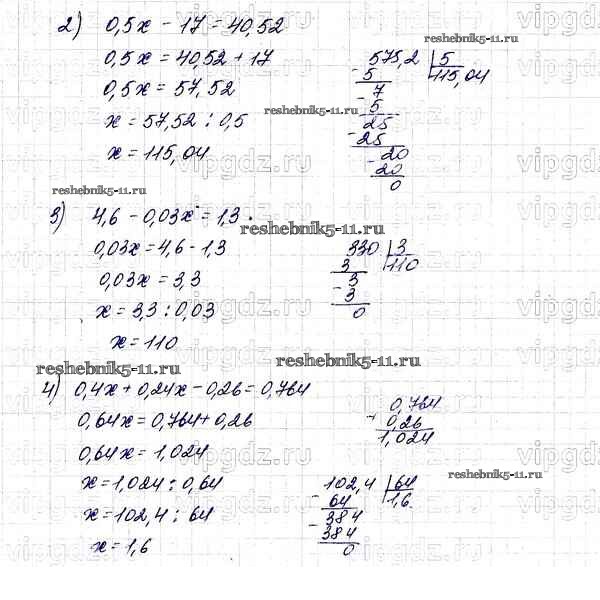 2) 0,5x - 17 = 40,52
0,5x = 40,52 + 17
0,5x = 57,52
x = 57,52 : 0,5
x = 115,04
575,2 | 5
- 5 115,04
7
- 5
25
- 25
20
- 20
0
reshebnik5-11.ru
reshebnik5-11.ru
reshebnik5-11.ru
3) 4,6 - 0,03x = 1,3
0,03x = 4,6 - 1,3
0,03x = 3,3
x = 3,3 : 0,03
x = 110
reshebnik5-11.ru
330 | 3
3 110
3
- 3
0
reshebnik5-11.ru
reshebnik5-11.ru
4) 0,4x + 0,24x - 0,26 = 0,764
0,64x = 0,764 + 0,26
0,64x = 1,024
x = 1,024 : 0,64
x = 102,4 : 64
x = 1,6
reshebnik5-11.ru
0,764
+ 0,26
1,024
reshebnik5-11.ru
102,4 | 64
- 64 1,6
384
- 384
0
vipgdz.ru
vipgdz.ru
vipgdz.ru
vipgdz.ru
vipgdz.ru
vipgdz.ru